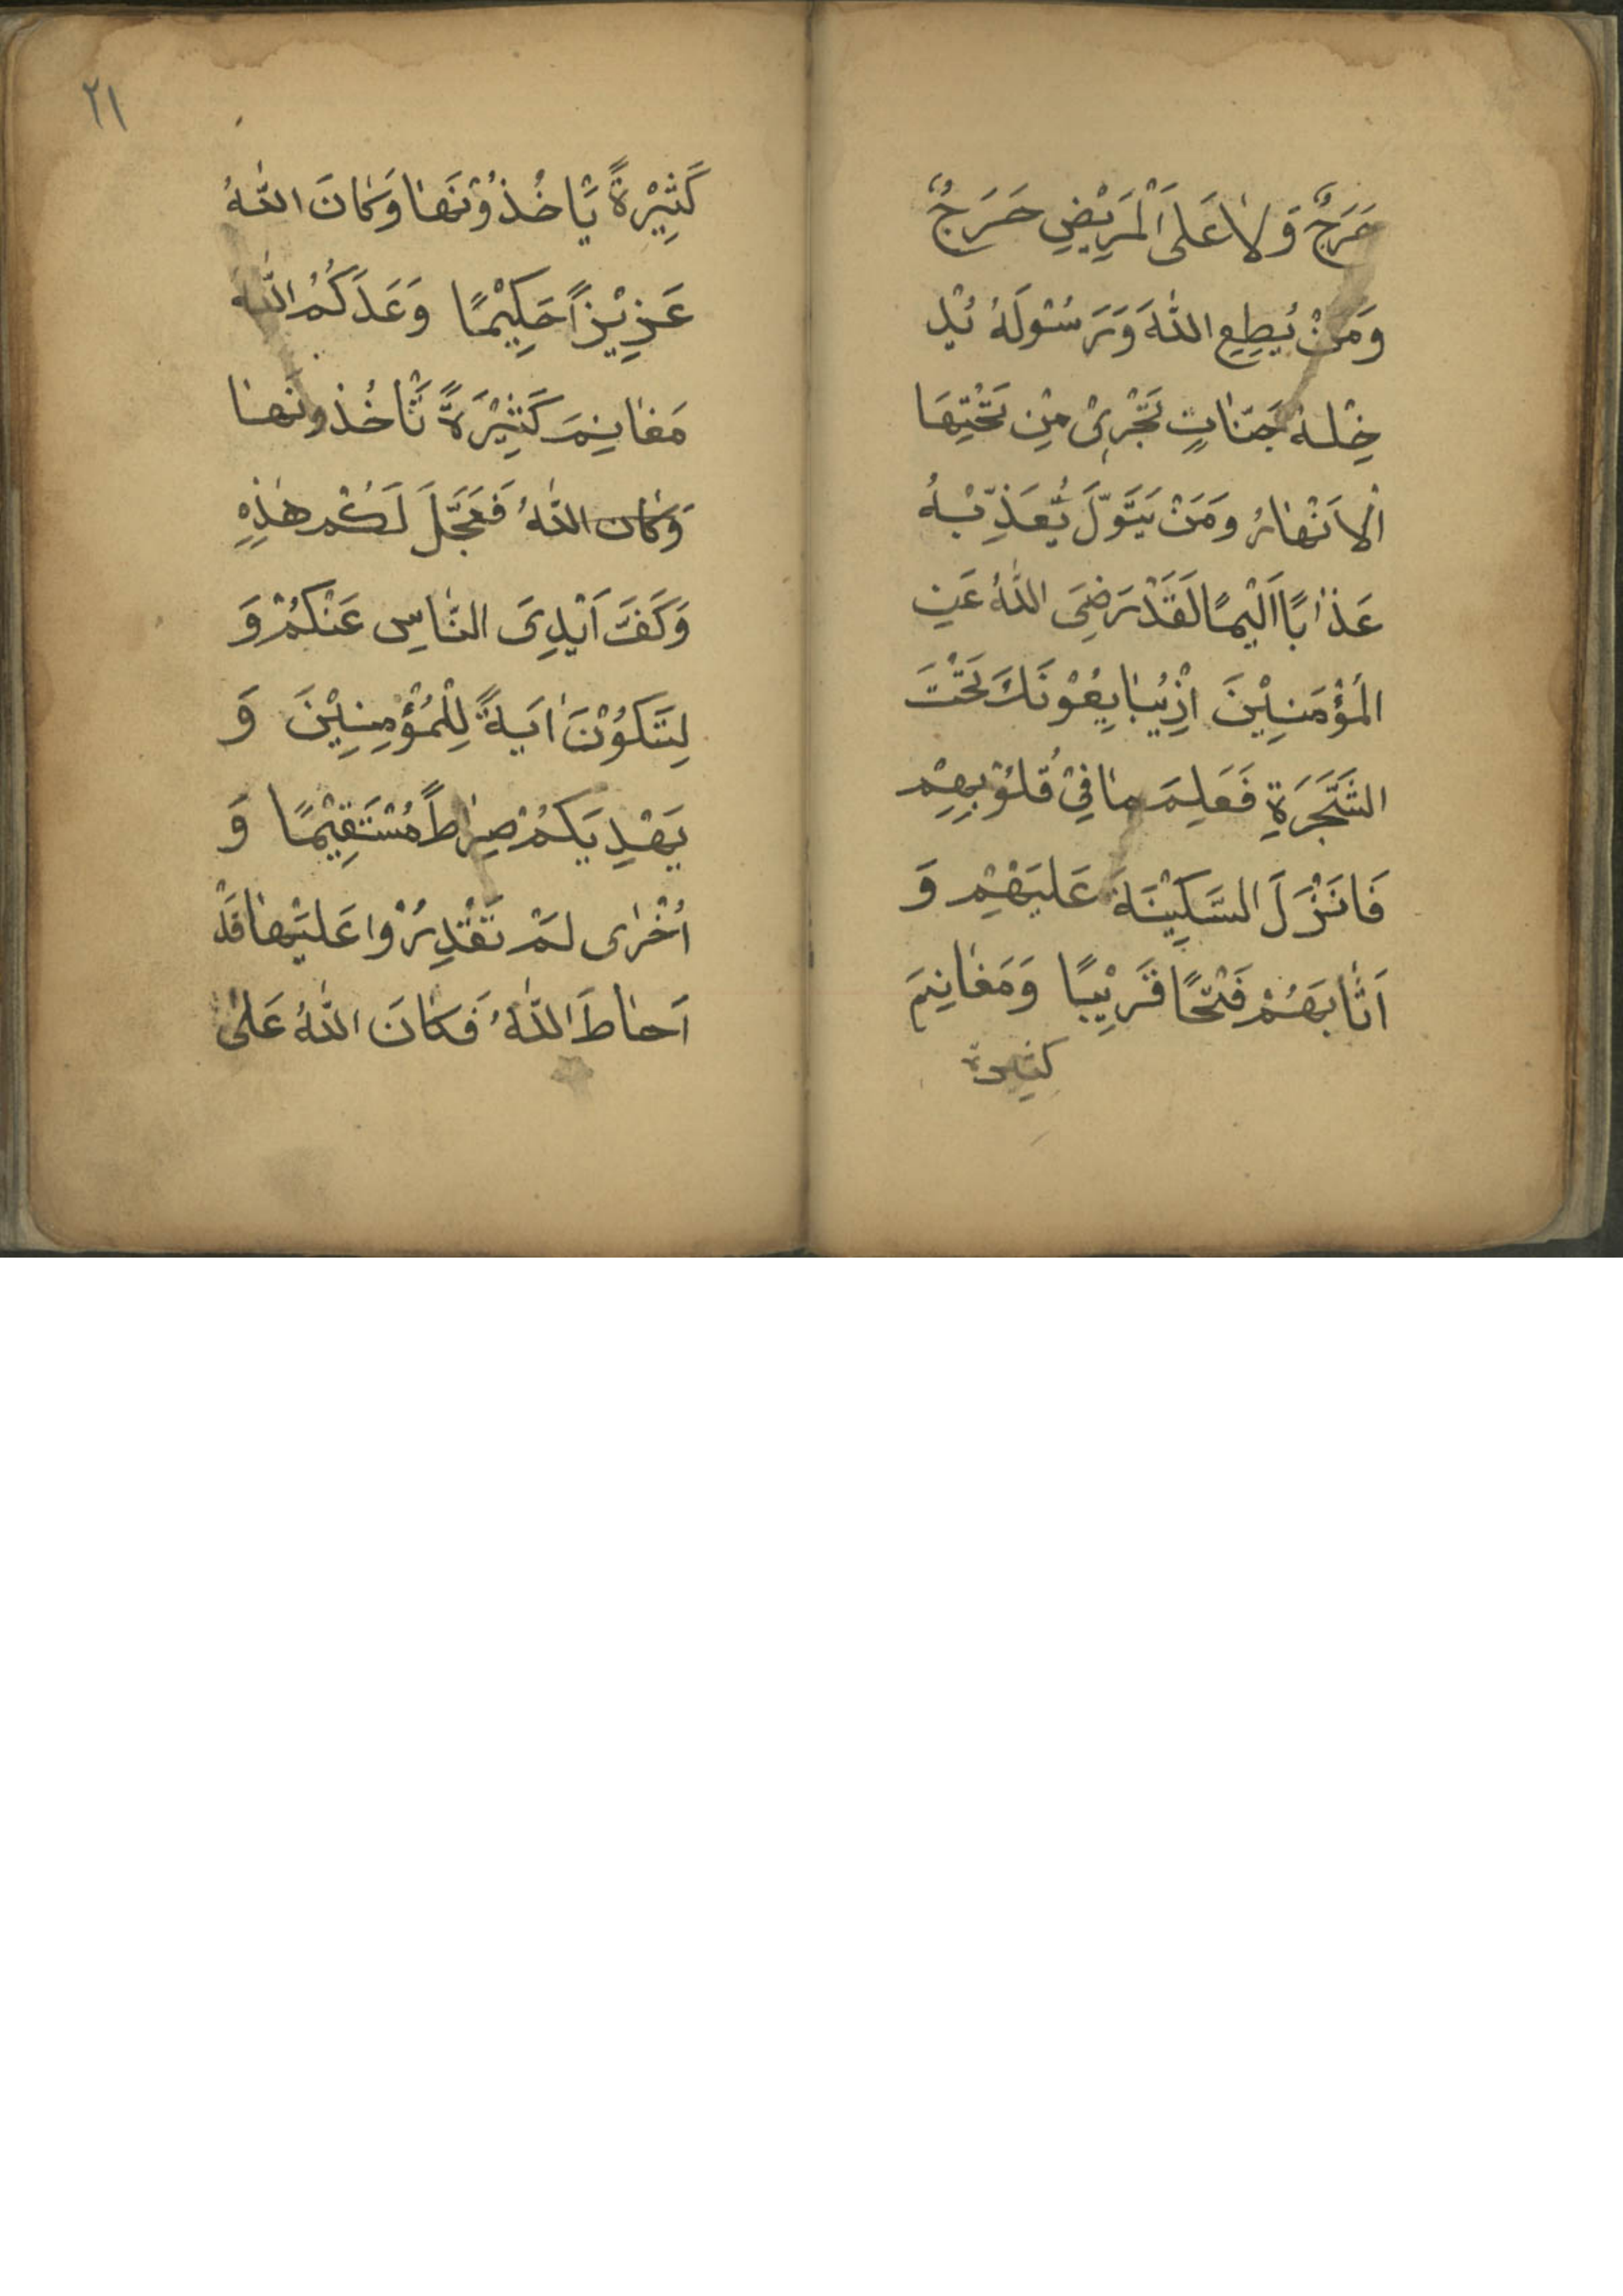 حَرَجٌ وَلاٰ عَلَى الْمَرِيْضِ حَرَجٌ
وَمَنْ يُطِعِ اللّٰهَ وَرَسُوْلَهُ يُدْ
خِلْهُ جَنّٰاتٍ تَجْرِىْ مِنْ تَحْتِهَا
الْاَنْهٰارُ وَمَنْ يَتَوَلَّ يُعَذِّبْهُ
عَذٰابًا اَلِيْمًا لَقَدْ رَضِىَ اللّٰهُ عَنِ
الْمُؤْمِنِيْنَ اِذْ يُبٰايِعُوْنَكَ تَحْتَ
الشَّجَرَةِ فَعَلِمَ مٰا فِيْ قُلُوْبِهِمْ
فَاَنْزَلَ السَّكِيْنَةَ عَلَيْهِمْ وَ
اَثٰابَهُمْ فَتْحًا قَرِيْبًا وَمَغٰانِمَ
كثيرة
٢١
كَثِيْرَةً يَاْخُذُوْنَهٰا وَكٰانَ اللّٰهُ
عَزِيْزًا حَكِيْمًا وَعَدَكُمُ اللّٰهُ
مَغٰانِمَ كَثِيْرَةً تَاْخُذُونَهٰا
وَكٰان اللّٰهُ فَعَجَّلَ لَكُمْ هٰذِهِ
وَكَفَّ اَيْدِىَ النّٰاسِ عَنْكُمْ وَ
لِتَكُوْنَ اٰيَةً لِلْمُؤْمِنِيْنَ وَ
يَهْدِيَكُمْ صِرٰاطًا مُسْتَقِيْمًا وَ
اُخْرٰى لَمْ تَقْدِرُوْا عَلَيْهٰا قَدْ
اَحٰاطَ اللّٰهُ فَكٰانَ اللّٰهُ عَلىٰ